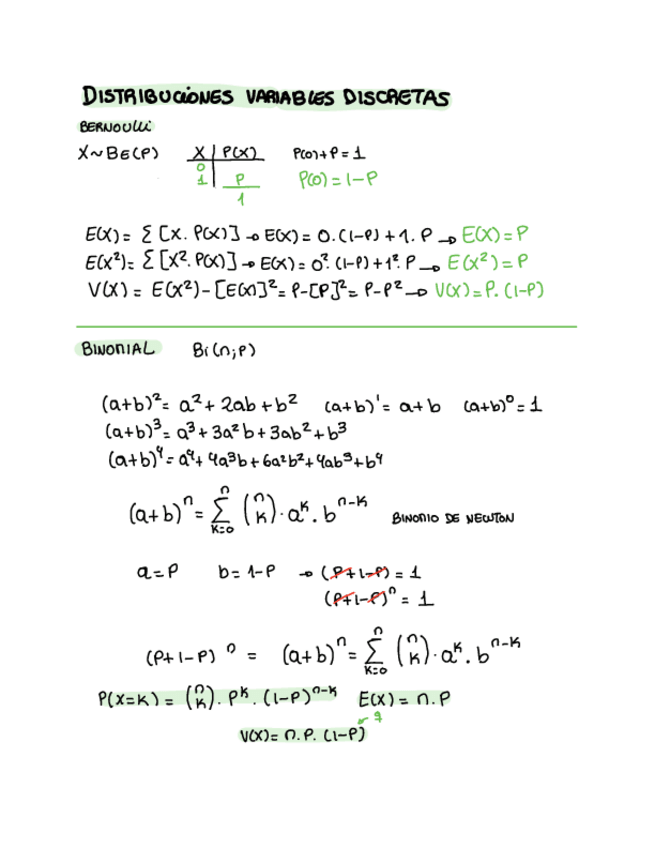 DISTRIBUCIONES VARIABLES DISCRETAS
BERNOULLI
X~BE(P) X | P(X) P(0)+P=1
0
1 | P P(0)=1-P
1
E(X)= Σ [X. P(X)] → E(X)= 0.(1-P)+1.P → E(X)=P
E(X²)= Σ [X². P(X)] → E(X)= 0².(1-P)+1².P → E(X²)=P
V(X) = E(X²)-[E(X)]²= P-[P]²= P-P² → V(X)=P.(1-P)
BINONIAL Bi(n;P)
(a+b)²= a²+2ab+b² (a+b)¹= a+b (a+b)⁰=1
(a+b)³= a³+3a²b+3ab²+b³
(a+b)⁴= a⁴+4a³b+6a²b²+4ab³+b⁴
(a+b)ⁿ= Σ_{K=0}^{n} (n K). a^K. b^{n-K} BINOMIO DE NEWTON
a=P b=1-P → (P+1-P)=1
(P+1-P)ⁿ=1
(P+1-P)ⁿ = (a+b)ⁿ= Σ_{K=0}^{n} (n K). a^K. b^{n-K}
P(X=K)= (n K). P^K. (1-P)^{n-K} E(X)= n.P
q
V(X)= n.P. (1-P)